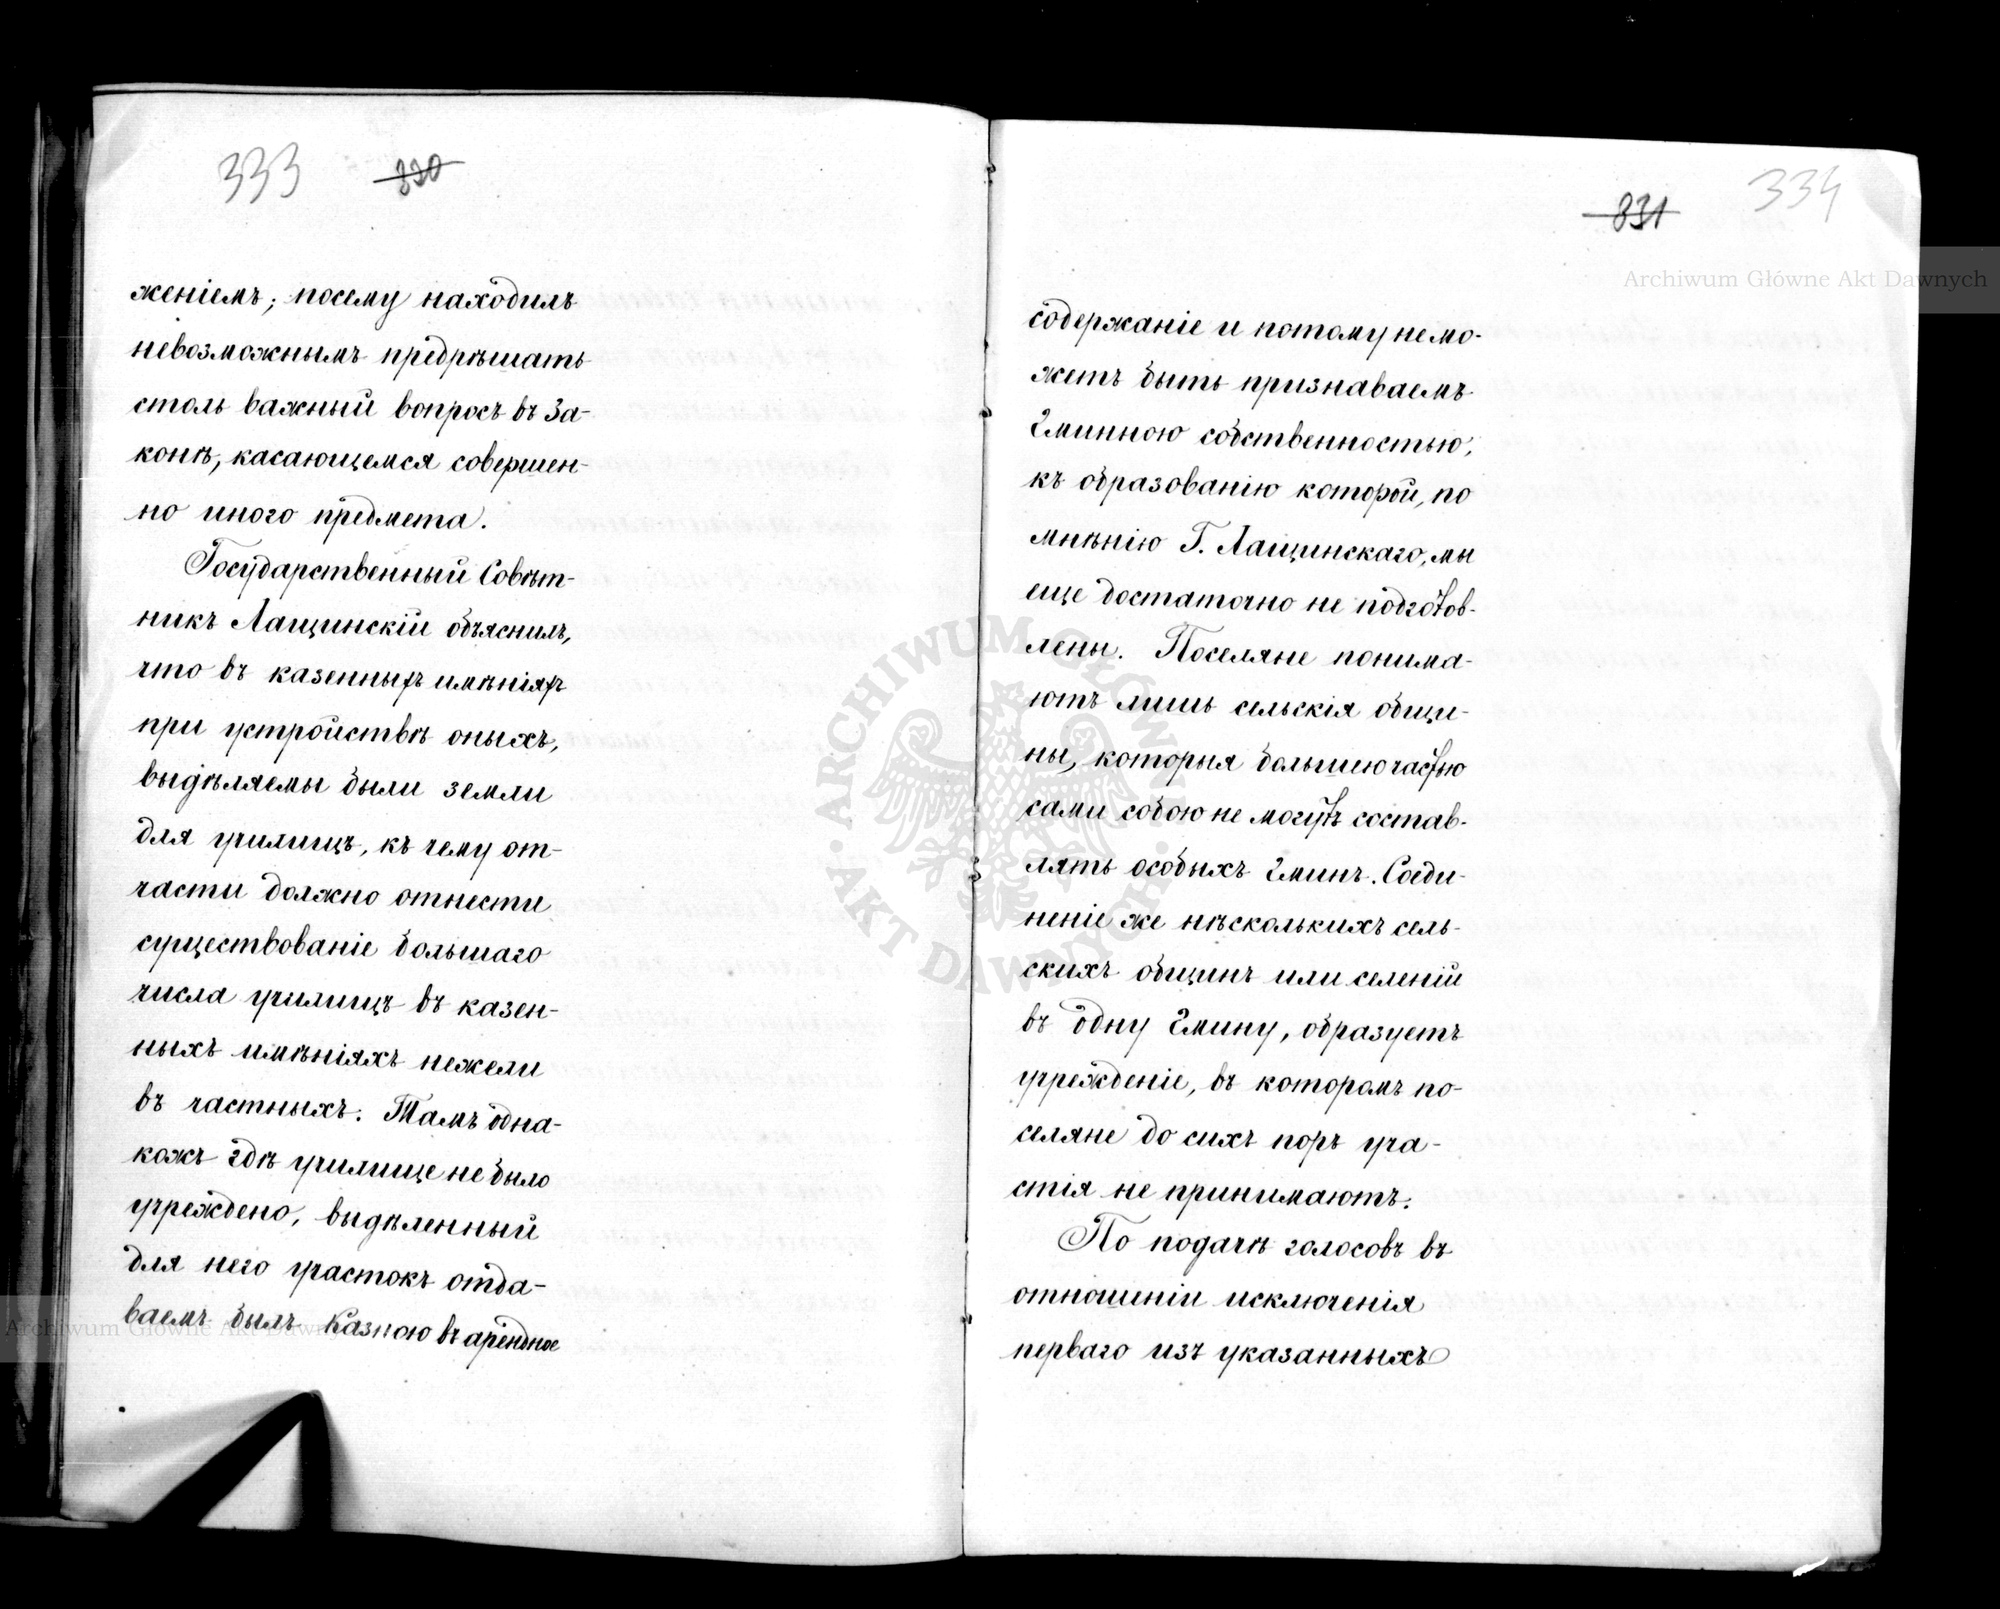 333 330
женіемъ; посему находилъ
невозможнымъ предрѣшать
столь важный вопросъ въ За-
конѣ, касающемся совершен-
но иного предмета.
Государственный Совѣт-
никъ Лащинскій объяснилъ,
что въ казенныхъ имѣніяхъ
при устройствѣ оныхъ,
выдѣляемы были земли
для училищъ, къ чему от-
части должно отнести
существованіе большаго
числа училищъ въ казен-
ныхъ имѣніяхъ нежели
въ частныхъ. Тамъ одна-
кожъ гдѣ училище не было
учреждено, выдѣленный
для него участокъ отда-
ваемъ былъ Казною въ арендное
334
331
содержаніе и потому не мо-
жетъ быть признаваемъ
Гминною собственностью,
къ образованію которой, по
мнѣнію Г. Лащинскаго, мы
еще достаточно не подготов-
лены. Поселяне понима-
ютъ лишь сельскія общи-
ны, которыя большею частью
сами собою не могутъ состав-
лять особыхъ Гминъ. Соеди-
неніе же нѣсколькихъ сель-
скихъ общинъ или селеній
въ одну Гмину, образуетъ
учрежденіе, въ которомъ по-
селяне до сихъ поръ уча-
стія не принимаютъ.
По подачѣ голосовъ въ
отношеніи исключенія
перваго изъ указанныхъ
Archiwum Główne Akt Dawnych
Archiwum Główne Akt Dawnych
ARCHIWUM GŁÓWNE · AKT DAWNYCH ·